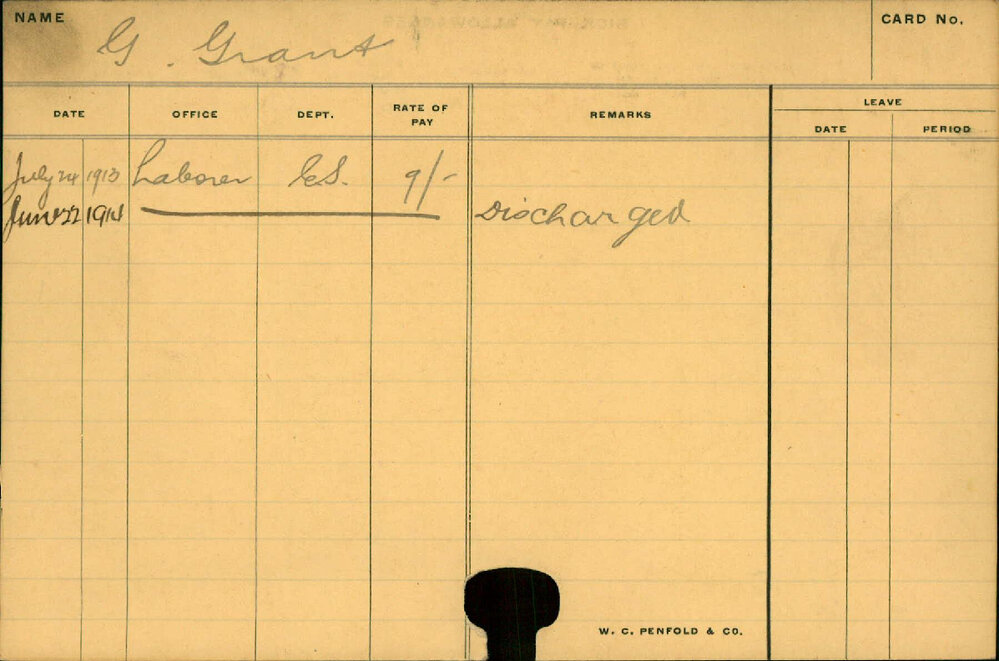 NAME G. Grant CARD No.
DATE OFFICE DEPT. RATE OF PAY REMARKS LEAVE
DATE PERIOD
July 24 1913 Laborer 9/-
June 22 1914 Discharged
W. C. PENFOLD & CO.